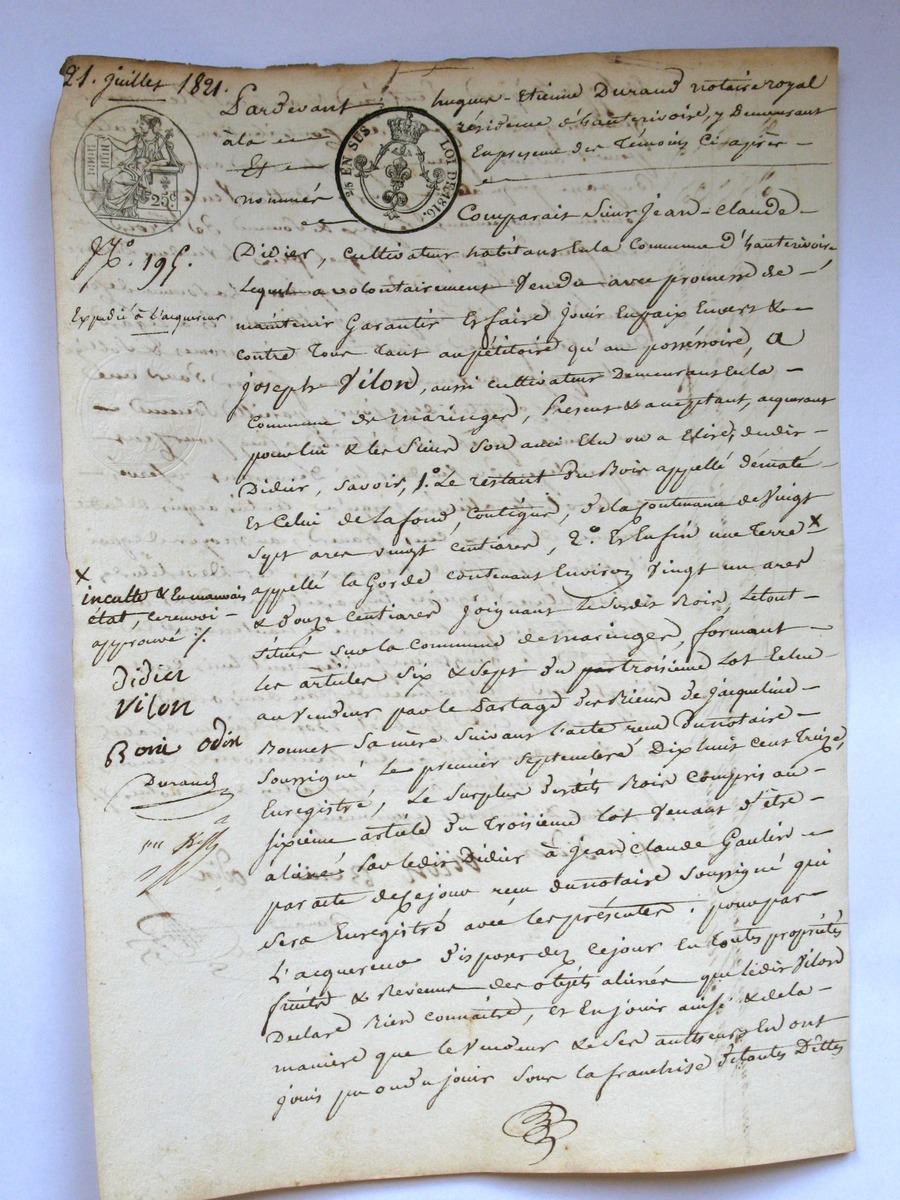 21. Juillet 1821.
Pardevant hugues-Etienne Durand notaire royal
à la résidence d'hauterivoire, y Demeurant
Et En présence des Témoins Ci après
nommés
25c.
EN SUS LOI DE 1816.
Comparait Sieur Jean-Claude
N.° 195.
Didier, cultivateur habitant En la Commune d'hauterivoire
Lequel a volontairement Vendu avec promesse de
Expédié à l'acquereur
maintenir Garantir Et faire Jouir En paix Envers &
contre Tous tant au pétitoire qu'au possessoire, a
joseph Vilon, aussi cultivateur Demeurant En la
Commune de maringes, Présent & acceptant, acquerant
pour lui & les Siens Son ami Elu ou a Elire, dudit
Didier, Savoir, 1.° Le restant Du Bois appellé
Et Celui de Lafond, Contigue, De la Contenance de Vingt
Sept ares vingt centiares, 2.° Et Enfin une Terre x
appellé la Gorde contenant Environ Vingt un ares
& Douze Centiares Joignant Le Susdit Bois, Le tout
x
inculte & En mauvais
état, ce renvoi
approuvé /.
Didier
Vilon
odin
Durand
Situé Sur la Commune de maringes, formant
les articles Six & Sept du troisième Lot Echu
au Vendeur par le Partage Des Biens de Jacqueline
Bonnet Sa mère Suivant l'acte reçu Du notaire
Soussigné Le premier Septembre Dix huit cent Treize,
Enregistré, Le Surplus Desdits Bois compris au
Sixième article Du Troisième Lot Venant D'être
aliéné Par ledit Didier à Jean Claude Gaulin
par acte de Ce jour reçu Du notaire Soussigné qui
Sera Enregistré avec les présentes; pour par
L'acquereur Disposer dez Ce jour En toutes propriétés
fruits & Revenus des objets aliénés que ledit Vilon
Declare Bien connaitre, Et En jouir ainsi & de la
maniere que le Vendeur & Ses auteurs En ont
joui pu ou du jouir Sous la franchise De toutes Dettes